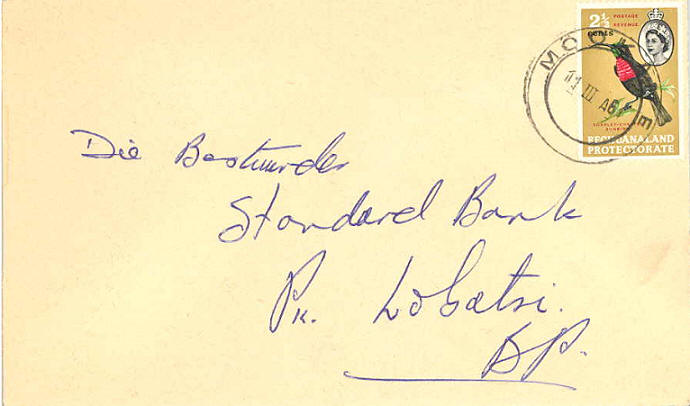 2½ cents
POSTAGE
REVENUE
SCARLET-CHESTED
SUNBIRD
BECHUANALAND
PROTECTORATE
Die Bestuurder
Standard Bank
Pk. Lobatsi.
BP.